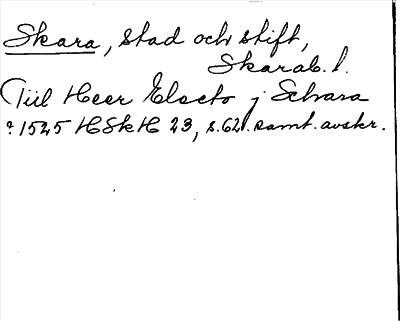 Skara, stad och stift,
Skarab. l.
Till Heer Electo j Schara
? 1525 HSkH 23, s.62. samt. avskr.